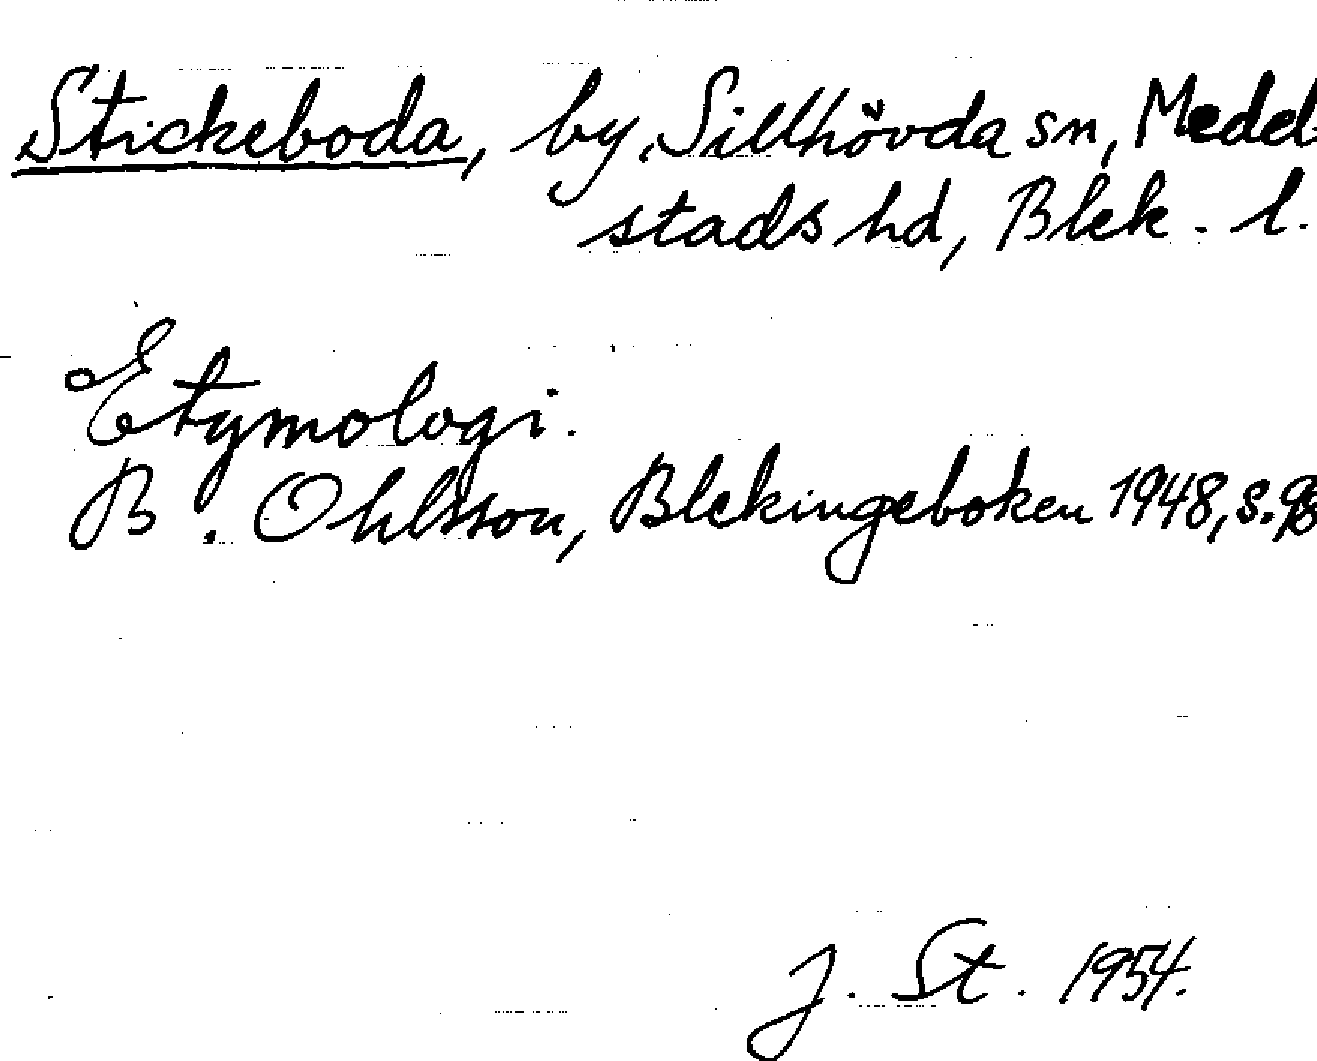 Stickeboda, by, Sillhövda sn, Medel-
stads hd, Blek. l.
Etymologi.
B. Ohlsson, Blekingeboken 1948, s.
J. St. 1954.